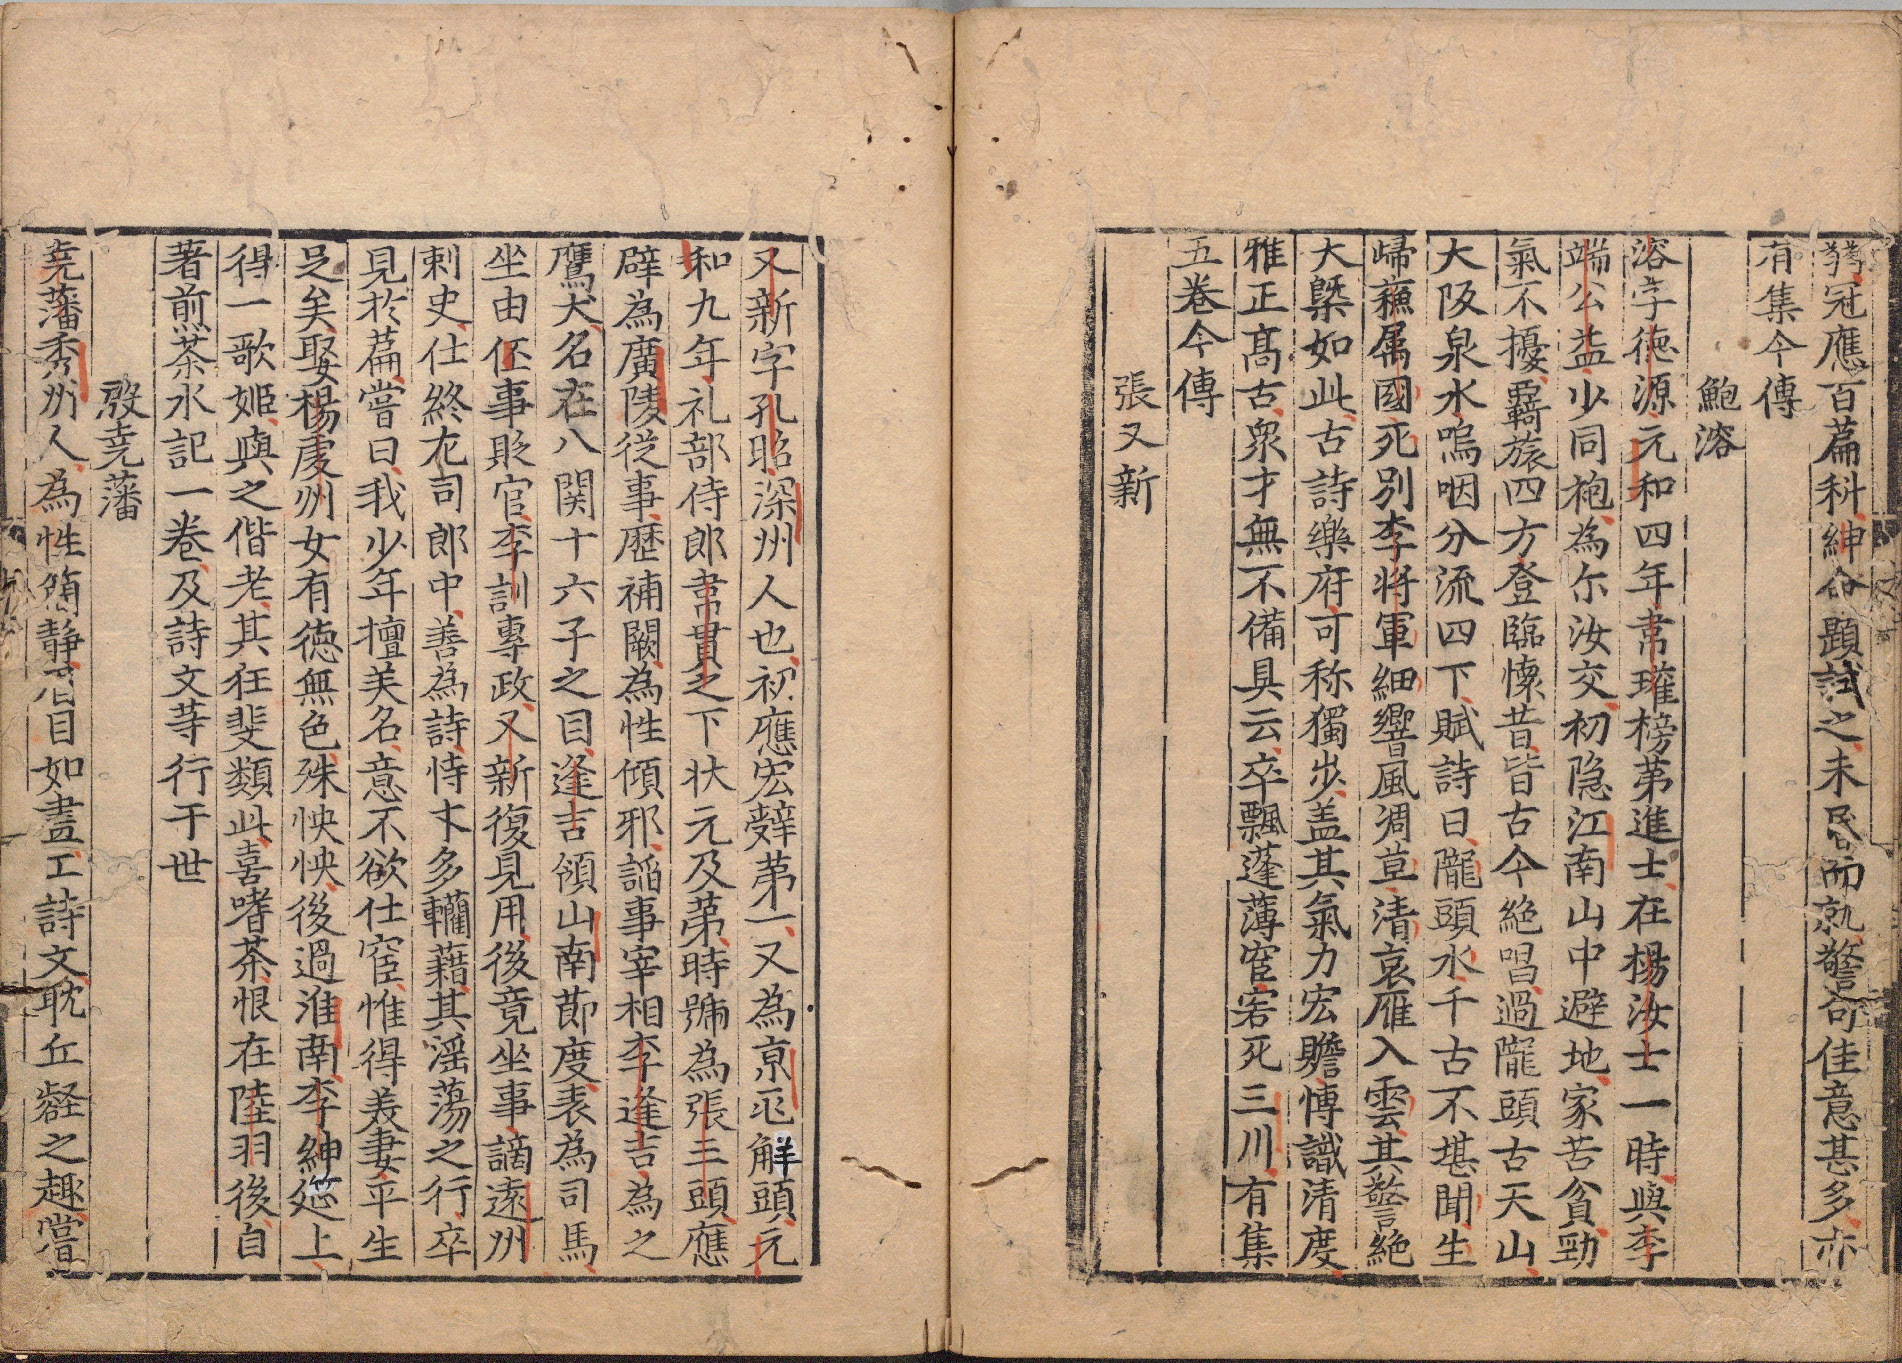 獘冠應百篇科紳命題試之未昏而就警奇佳意甚多亦
有集今傳
鮑溶
溶字徳源元和四年韋瓘榜苐進士在楊汝士一時與李
端公益少同袍為尓汝交初隠江南山中避地家苦貧勁
氣不擾羇旅四方登臨懷昔皆古今絶唱過隴頭古天山
大阪泉水嗚咽分流四下賦詩曰隴頭水千古不堪聞生
㱕蘓属國死別李将軍細響風凋草清哀雁入雲其警絶
大槩如此古詩樂府可称獨歩盖其氣力宏贍愽識清度
雅正髙古衆才無不備具云卒飄蓬薄宦客死三川有集
五巻今傳
張又新
又新字孔昭深州人也初應宏辭苐一又為京兆解頭元
和九年礼部侍郎韋貫之下状元及苐時號為張三頭應
辟為廣陵従事歴補闕為性傾邪謟事宰相李逢吉為之
鷹犬名在八関十六子之目逢吉領山南莭度表為司馬
坐由伾事貶官李訓専政又新復見用後竟坐事謫遠州
刺史仕終尢司郎中善為詩恃才多轥藉其滛蕩之行卒
見扵篇嘗曰我少年擅美名意不欲仕宦惟得美妻平生
足矣娶楊䖍州女有徳無色殊怏怏後過淮南李紳筵上
得一歌姬與之偕老其狂斐類此喜嗜茶恨在陸羽後自
著煎茶水記一巻及詩文䓁行于世
殷尭藩
尭藩秀州人為性簡静眉目如畫工詩文耽丘壑之趣嘗